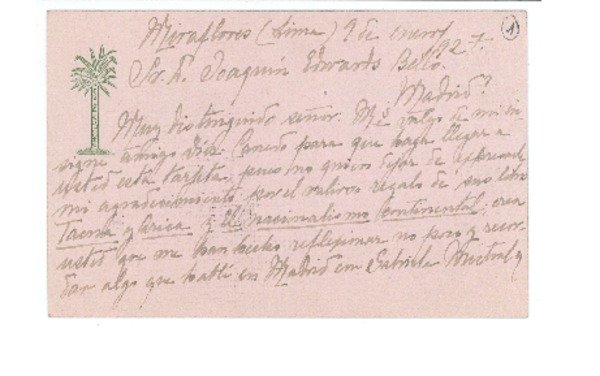 1
Miraflores (Lima) 9 de enero
1927.
Sr. D. Joaquín Edwards Bello.
Madrid?
Muy distinguido señor: Me valgo de mi in
signe amigo Díez Canedo para que haga llegar a
usted esta tarjeta, pues no quiero dejar de expresarle
mi agradecimiento por el valioso regalo de sus libros
Tacna y Arica y El nacionalismo continental: crea
usted que me han hecho reflexionar no poco y recor
dar algo que hablé en Madrid con Gabriela Mistral y